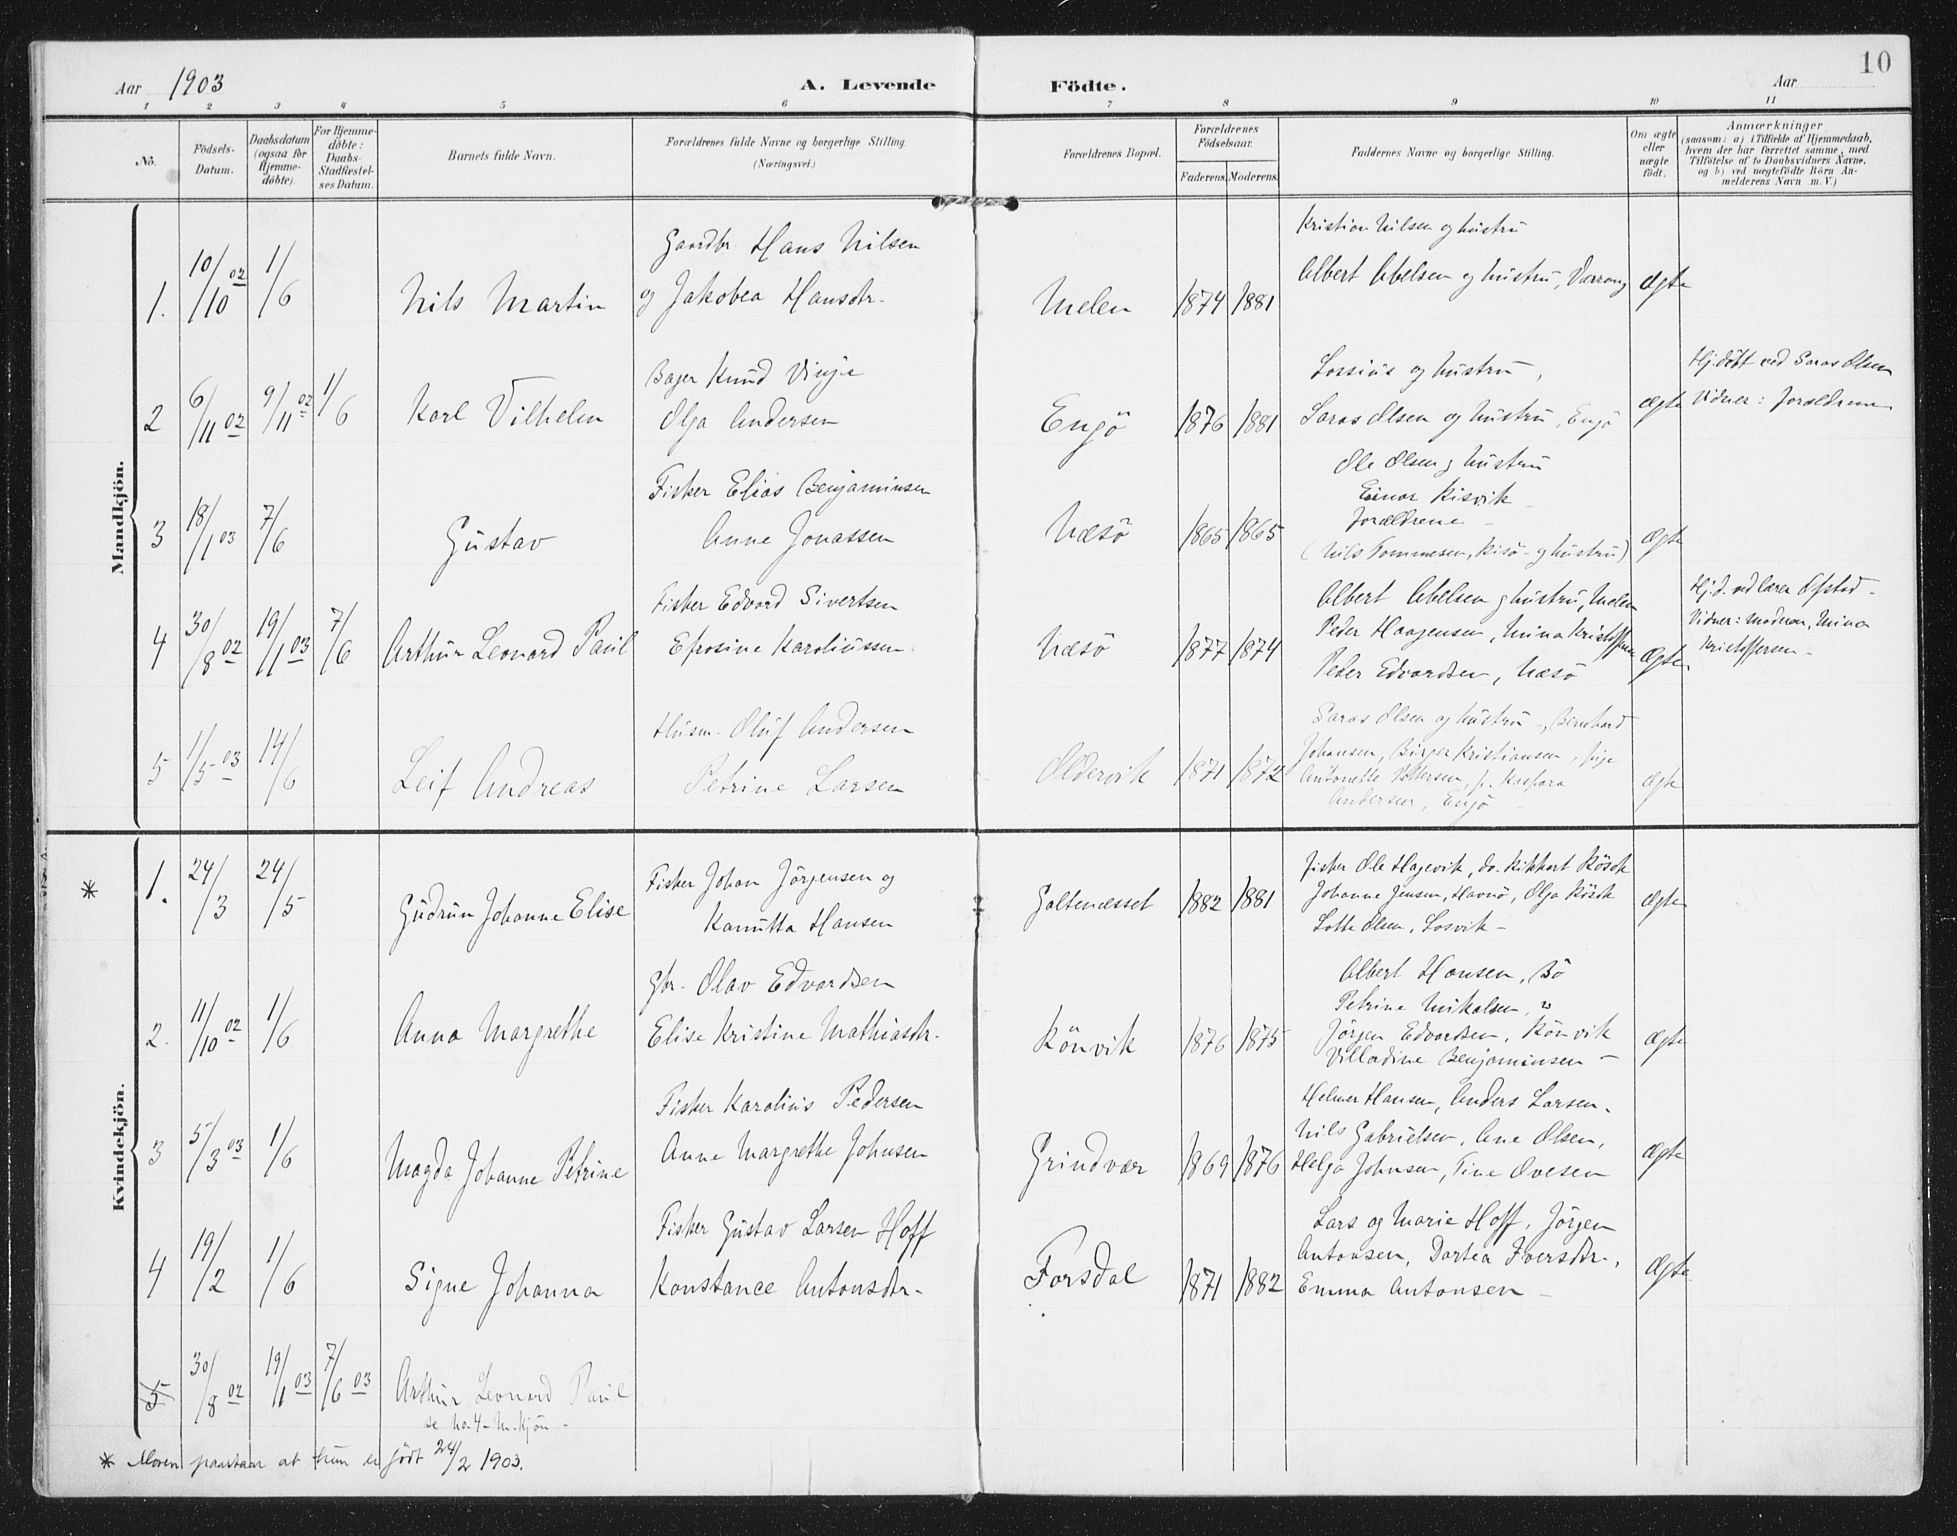 10
Aar 1903 A. Levende Födte. Aar
1 2 3 4 5 6 7 8 9 10 11
No. Födsels-Datum. Daabsdatum (ogsaa for Hjemme-döbte). For Hjemme-döbte: Daabs-Stadfæstel-ses Datum. Barnets fulde Navn. Forældrenes fulde Navne og borgerlige Stilling. (Næringsvei.) Forældrenes Bopæl. Forældrenes Födselsaar. Faderens. Moderens. Faddernes Navne og borgerlige Stilling. Om ægte eller uægte födt. Anmærkninger (saasom: a) i Tilfælde af Hjemmedaab, hvem der har forrettet samme, med Tilföielse af to Daabsvidners Navne, og b) ved uægtefödte Börn An-melderens Navn m. V.)
Mandkjön.
1. 10/10 02 1/6 Nils Martin
Gaardbr. Hans Nilsen
og Jakobea Hansdtr.
Melen 1874 1881
Kristian Nilsen og hustru
Albert Abelsen og hustru, ægte
2 6/11 02 9/11 02 1/6 Karl Vilhelm
Bager Knud Vinje
Olga Andersen
Engö 1876 1881
Lossius og hustru,
Saras Olsen og hustru, Engö ægte
Hj.döbt ved Saras Olsen
Vidner: forældrene
3 18/1 03 7/6 Gustav
Fisker Elias Benjaminsen
Anne Jonassen
Næsö 1865 1865
Ole Olsen og hustru
Einar Risvik
forældrene
(Nils Tommesen, Risö og hustru) ægte
4 30/8 02 19/1 03 7/6 Arthur Leonard Paul
Fisker Edvard Sivertsen
Efrosine Karoliussen
Næsö 1877 1874
Albert Abelsen og hustru, Melen
Peder Haagensen, Mina Kristoffersen
Peder Edvardsen, Næsö ægte
Hj.d. ved Lærer Ofstad -
Vidner: moderen, Mina
Kristoffersen -
5 1/5 03 14/6 Leif Andreas
Husm. Oluf Andersen
Petrine Larsen
Oldervik 1871 1872
Saras Olsen og hustru, Bernhard
Johansen, Birger Kristiansen, pige
Antonette Pettersen, p. Kaspara
Andersen, Engö ægte
Kvindekjön.
* 1. 24/3 24/5 Gudrun Johanne Elise
Fisker Johan Jörgensen og
Kanutta Hansen
Galtenæsset 1882 1881
fisker Ole Hagevik, do. Rikhart Rösok
Johanne Jensen, Havnö, Olga Rösok
Lotte Olsen, Losvik - ægte
2. 11/10 02 1/6 Anna Margrethe
Gbr. Olav Edvardsen
Elise Kristine Mathiasdtr.
Rönvik 1876 1875
Albert Hansen, Bö
Petrine Mikalsen, "
Jörgen Edvardsen, Rönvik
Villadine Benjaminsen - ægte
3 5/3 03 1/6 Magda Johanne Petrine
Fisker Karolius Pedersen
Anne Margrethe Johnsen
Grindvær 1869 1876
Helmer Hansen, Anders Larsen,
Nils Gabrielsen, Ane Olsen,
Helga Johnsen, Tine Ovesen ægte
4 19/2 1/6 Signe Johanna
Fisker Gustav Larsen Hoff
Konstance Antonsdtr.
Forsdal 1871 1882
Lars og Marie Hoff, Jörgen
Antonsen, Dortea Iversdtr.,
Emma Antonsen - ægte
5 30/8 02 19/1 03 7/6 03 Arthur Leonard Paul
se No. 4 - M.kjön -
* Moren paastaar at hun er födt 24/2 1903.